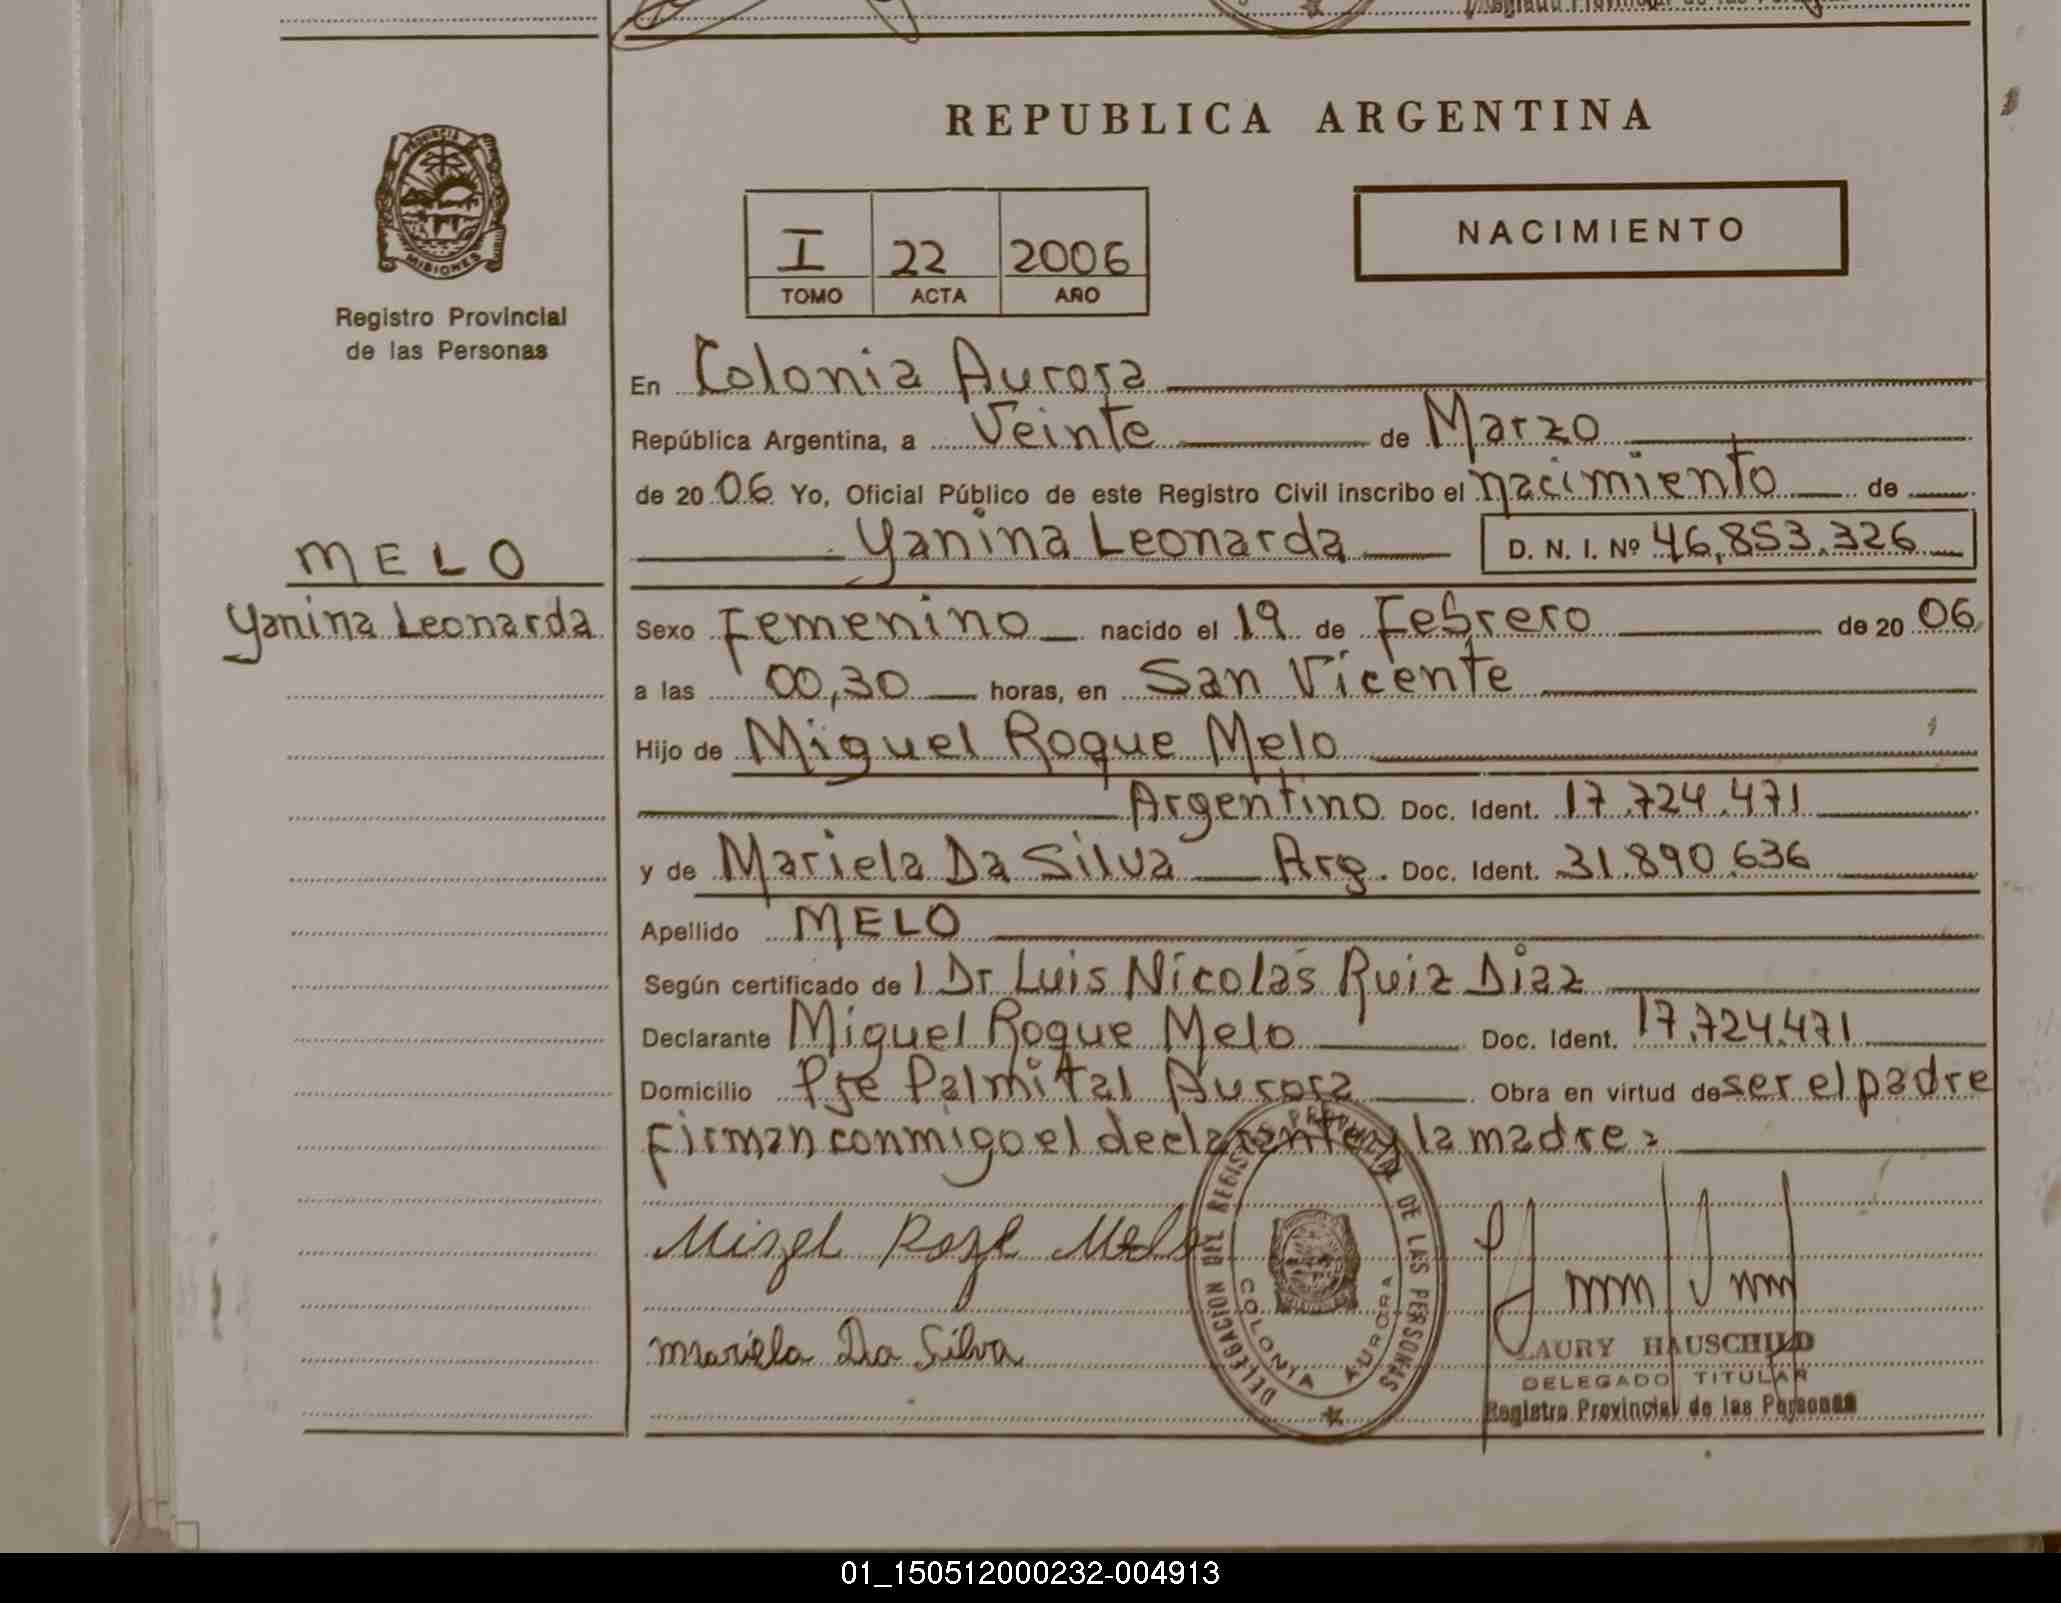 REPUBLICA ARGENTINA
PROVINCIA
MISIONES
Registro Provincial
de las Personas
I 22 2006
TOMO ACTA AÑO
NACIMIENTO
En Colonia Aurora
República Argentina, a Veinte de Marzo
de 2006 Yo, Oficial Público de este Registro Civil inscribo el nacimiento de
Yanina Leonarda D. N. I. Nº 46,853.326
MELO
Yanina Leonarda
Sexo Femenino nacido el 19 de Febrero de 2006
a las 00,30 horas, en San Vicente
Hijo de Miguel Roque Melo
Argentino Doc. Ident. 17.724.471
y de Mariela Da Silva Arg. Doc. Ident. 31.890.636
Apellido MELO
Según certificado de l Dr Luis Nicolás Ruiz Diaz
Declarante Miguel Roque Melo Doc. Ident. 17.724.471
Domicilio Pje Palmital Aurora Obra en virtud de ser el padre
Firman conmigo el declarante y la madre.
DELEGACION DEL REGISTRO PROVINCIAL DE LAS PERSONAS
COLONIA AURORA
Mariela Da Silva
LAURY HAUSCHILD
DELEGADO TITULAR
Registro Provincial de las Personas
01_150512000232-004913